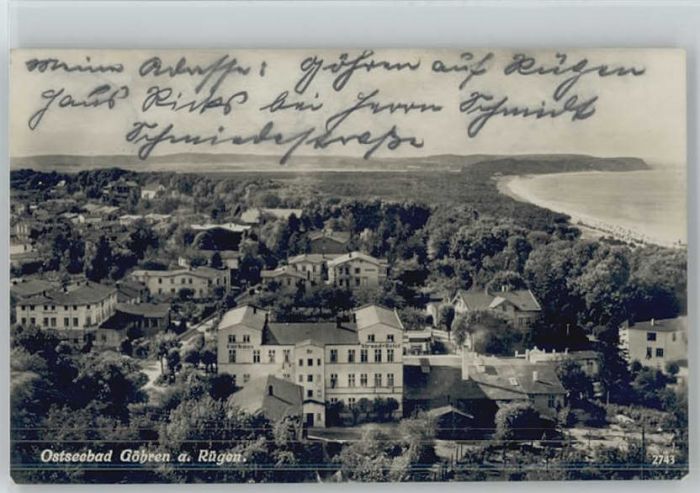 meine Adresse: Göhren auf Rügen
Haus Ricks bei Herrn Schmidt
Schmiedestraße
Ostseebad Göhren a. Rügen.
2743